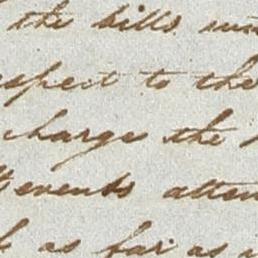 the bills
espect to the
charge the
events atten
as far as